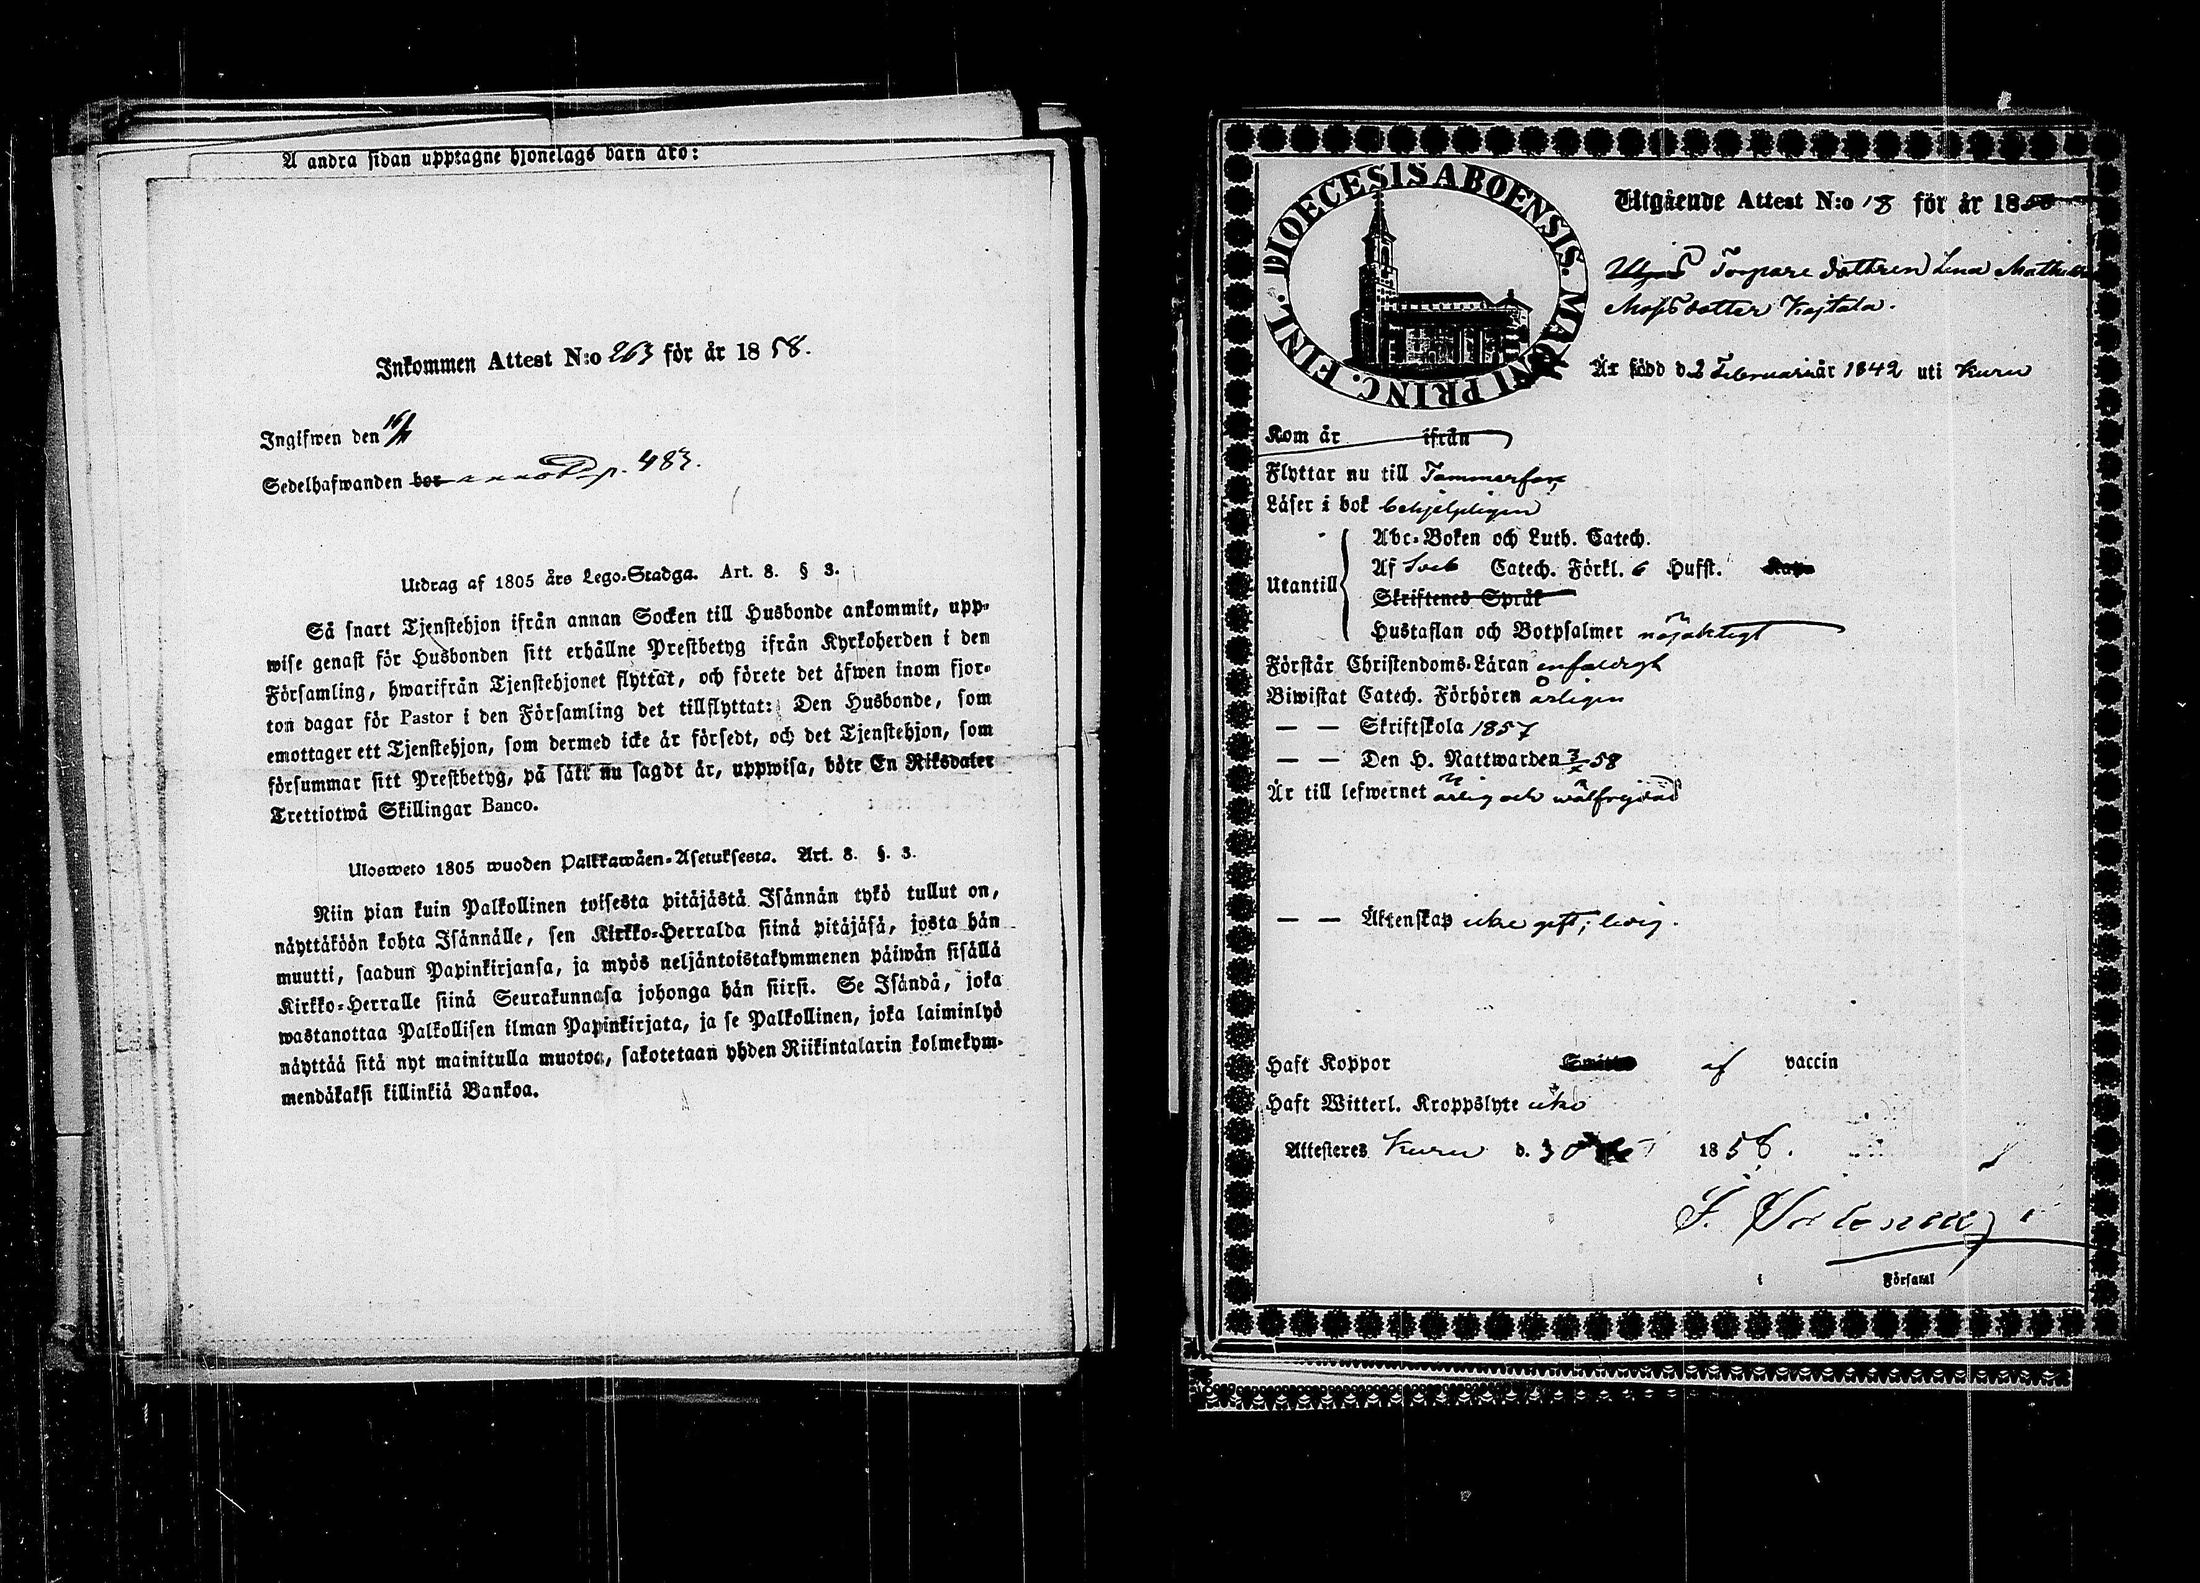 A andra sidan upptagne hjonelags barn äro:
Inkommen Attest N:o 263 för år 1858.
Ingifwen den 16/11
Sedelhafwanden bor annot. p. 483.
Utdrag af 1805 års Lego-Stadga. Art. 8. § 3.
Så snart Tjenstehjon ifrån annan Socken till Husbonde ankommit, upp-
wise genast för Husbonden sitt erhållne Prestbetyg ifrån Kyrkoherden i den
Församling, hwarifrån Tjenstehjonet flyttat, och förete det äfwen inom fjor-
ton dagar för Pastor i den Församling det tillflyttat: Den Husbonde, som
emottager ett Tjenstehjon, som dermed icke är försedt, och det Tjenstehjon, som
försummar sitt Prestbetyg, på sätt nu sagdt är, uppwisa, böte En Riksdaler
Trettiotwå Skillingar Banco.
Ulosweto 1805 wuoden Palkkawäen-Asetuksesta. Art. 8. §. 3.
Niin pian kuin Palkollinen toisesta pitäjästä Isännän tykö tullut on,
näyttäköön kohta Isännälle, sen Kirkko-Herralda siinä pitäjäsä, josta hän
muutti, saadun Papinkirjansa, ja myös neljäntoistakymmenen päiwän sisällä
Kirkko-Herralle siinä Seurakunnasa johonga hän siirsi. Se Isändä, joka
wastanottaa Palkollisen ilman Papinkirjata, ja se Palkollinen, joka laiminlyö
näyttää sitä nyt mainitulla muotoa, sakotetaan yhden Riikintalarin kolmekym-
mendäkaksi killinkiä Bankoa.
DIOECESIS ABOENSIS. MAGNI PRINC. FINL.
Utgående Attest N:o 18 för år 1858
Torpare dottren Lena Mathilda
Mosisdotter Kojtala.
Är född d. 2 Februarii år 1842 uti Kuru
Kom år ifrån
Flyttar nu till Tammerfors
Läser i bok behjelpligen
Utantill
Abc-Boken och Luth. Catech.
Af Sveb Catech. Förkl. 6 Hufst. Kap.
Skriftenes Språk
Hustaflan och Botpsalmer nöjaktigt
Förstår Christendoms-Läran enfaldigt
Biwistat Catech. Förhören årligen
— — Skriftskola 1857
— — Den H. Nattwarden 3/X 58
Är till lefwernet ärlig och wälfrejdad
— — Äktenskap icke gift; ledig.
Haft Koppor Smitto af vaccin
Haft Witterl. Kroppslyte icke
Attesteres Kuru d. 30 1858.
i Församl